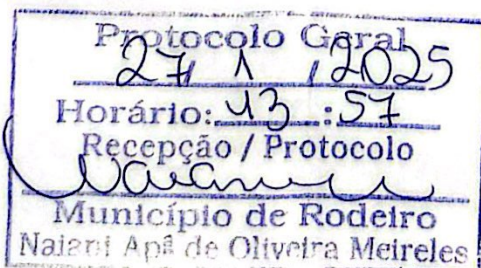 Protocolo Geral
27 / 1 / 2025
Horário: 13 : 57
Recepção / Protocolo
Município de Rodeiro
Naiani Apª de Oliveira Meireles